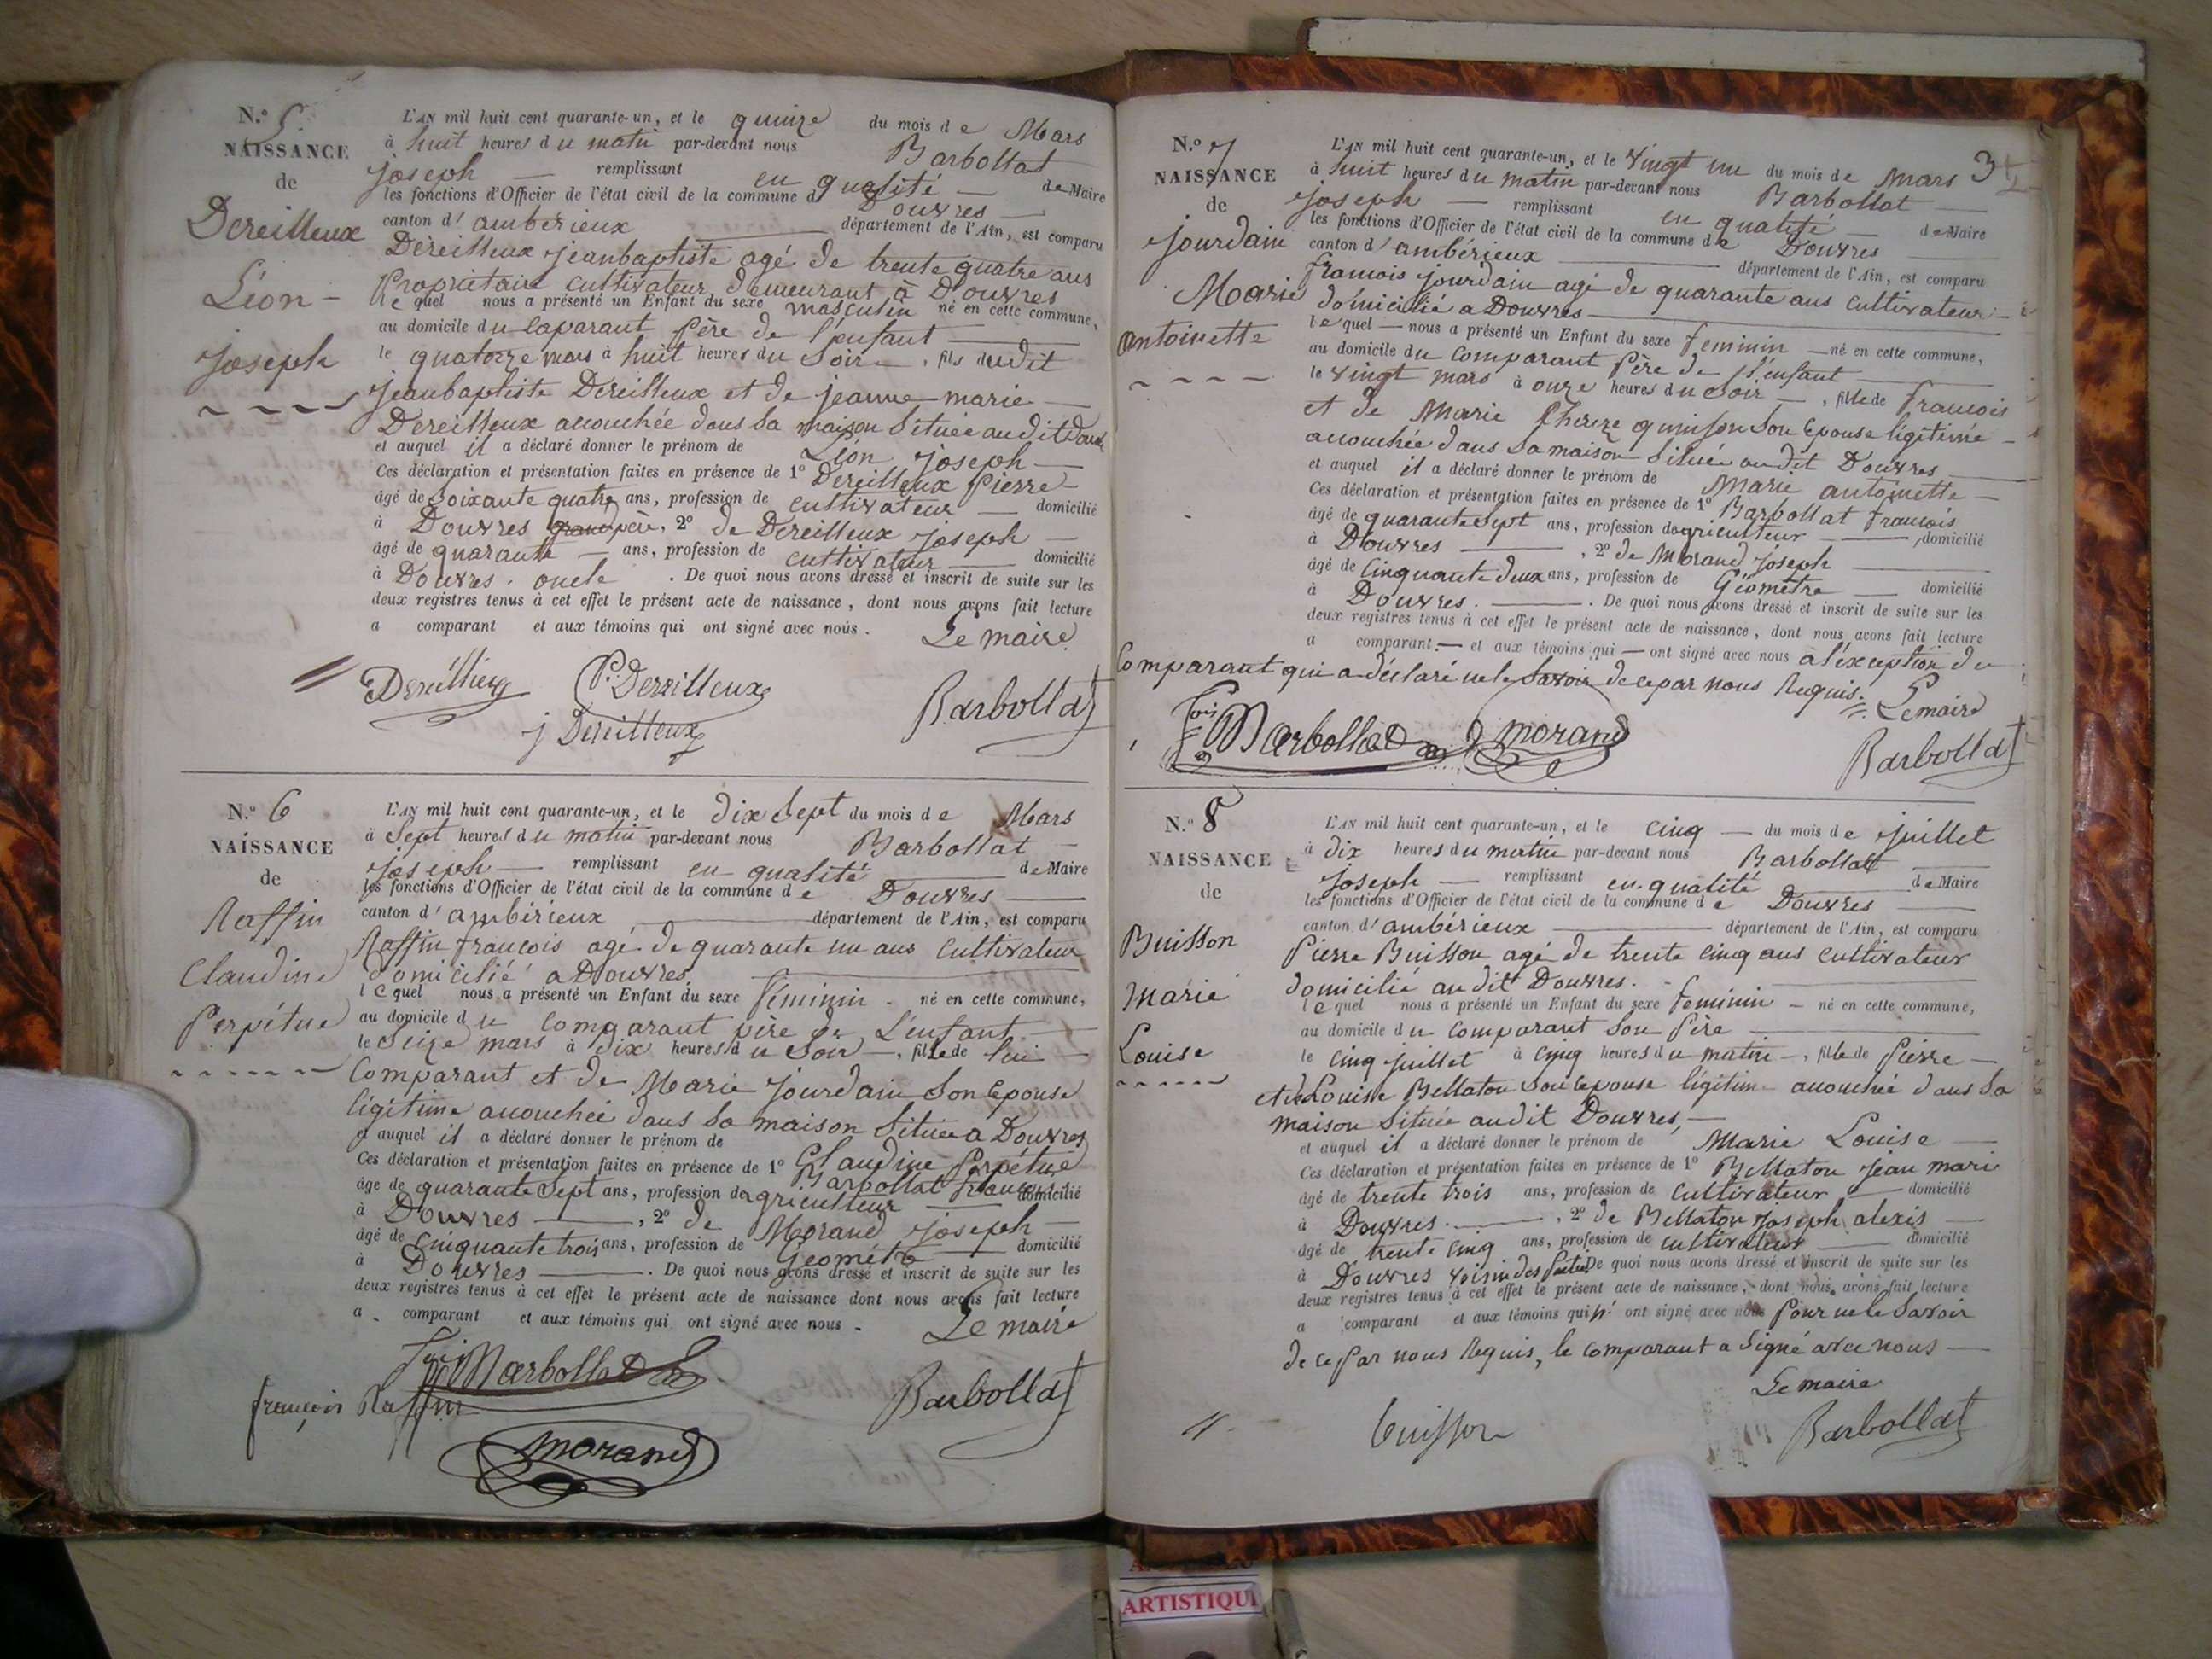 N.º 5.
NAISSANCE
de
Dereilleux
Léon -
Joseph
L'AN mil huit cent quarante-un, et le quinze du mois de Mars
à huit heures du matin par-devant nous Barbollat
joseph — remplissant en qualité — de Maire
les fonctions d'Officier de l'état civil de la commune d Douvres —
canton d'ambérieux — département de l'Ain, est comparu
Dereilleux jeanbaptiste agé de trente quatre ans
Propriétaire cultivateur demeurant à Douvres
le quel nous a présenté un Enfant du sexe masculin né en cette commune,
au domicile du Coparant Père de l'enfant —
le quatorze mars à huit heures du Soir —, fils dudit
jeanbaptiste Dereilleux et de jeanne marie —
Dereilleux accouchée dans sa maison Située audit
et auquel il a déclaré donner le prénom de Léon Joseph —
Ces déclaration et présentation faites en présence de 1º Dereilleux Pierre —
âgé de Soixante quatre ans, profession de cultivateur — domicilié
à Douvres grand père, 2º de Dereilleux joseph —
âgé de quarante — ans, profession de cultivateur — domicilié
à Douvres. oncle . De quoi nous avons dressé et inscrit de suite sur les
deux registres tenus à cet effet le présent acte de naissance, dont nous avons fait lecture
a comparant et aux témoins qui ont signé avec nous. Le maire
Dereilleux P. Dereilleux
j Dereilleux Barbollat
N.º 6
NAISSANCE
de
Raffin
Claudine
Perpétue
L'AN mil huit cent quarante-un, et le dix Sept du mois de Mars
à Sept heures du matin par-devant nous Barbollat —
joseph — remplissant en qualité — de Maire
les fonctions d'Officier de l'état civil de la commune de Douvres —
canton d'ambérieux — département de l'Ain, est comparu
Raffin françois agé de quarante un ans Cultivateur
domicilié a Douvres. —
le quel nous a présenté un Enfant du sexe féminin - né en cette commune,
au domicile du Comparant père de L'enfant —
le Seize mars à dix heures du Soir —, fille de lui —
Comparant et de Marie jourdain Son Epouse
légitime accouchée dans Sa maison Située a Douvres
et auquel il a déclaré donner le prénom de Claudine Perpétue
Ces déclaration et présentation faites en présence de 1º Barbollat francois
âgé de quarante Sept ans, profession dagriculteur — domicilié
à Douvres —, 2º de Morand joseph —
âgé de Cinquante trois ans, profession de Géomètre — domicilié
à Douvres —. De quoi nous avons dressé et inscrit de suite sur les
deux registres tenus à cet effet le présent acte de naissance dont nous avons fait lecture
a . comparant et aux témoins qui ont signé avec nous . Le maire
fois Barbollat
françois Raffin Barbollat
morand
3
N.º 7
NAISSANCE
de
jourdain
Marie
antoinette
L'AN mil huit cent quarante-un, et le vingt un du mois de Mars
à huit heures du matin par-devant nous Barbollat —
joseph — remplissant en qualité — de Maire
les fonctions d'Officier de l'état civil de la commune de Douvres —
canton d'ambérieux — département de l'Ain, est comparu
francois jourdain agé de quarante ans Cultivateur —
domicilié a Douvres —
le quel — nous a présenté un Enfant du sexe féminin — né en cette commune,
au domicile du Comparant Père de l'enfant —
le vingt mars à onze heures du Soir —, fille de francois
et de Marie Thereze quinson Son Epouse légitime —
accouchée dans Sa maison Située au dit Douvres —
et auquel il a déclaré donner le prénom de Marie antoinette —
Ces déclaration et présentation faites en présence de 1º Barbollat francois
âgé de quarante Sept ans, profession dagriculteur —, domicilié
à Douvres —, 2º de Morand joseph —
âgé de Cinquante deux ans, profession de Géomètre — domicilié
à Douvres. —. De quoi nous avons dressé et inscrit de suite sur les
deux registres tenus à cet effet le présent acte de naissance, dont nous avons fait lecture
a comparant — et aux témoins qui — ont signé avec nous a l'éxception du
Comparant qui a déclaré ne le Savoir de ce par nous Requis. Le maire
fois Barbollat j morand
Barbollat
N.º 8
NAISSANCE
de
Buisson
Marie
Louise
L'AN mil huit cent quarante-un, et le Cinq — du mois de juillet
à dix heures du matin par-devant nous Barbollat
joseph — remplissant en qualité — de Maire
les fonctions d'Officier de l'état civil de la commune de Douvres —
canton d'ambérieux — département de l'Ain, est comparu
Pierre Buisson agé de trente Cinq ans Cultivateur
domicilié au dit Douvres. —
le quel nous a présenté un Enfant du sexe féminin — né en cette commune,
au domicile du Comparant Son Père —
le Cinq juillet à Cinq heures du matin —, fille de Pierre —
et de Louise Bellaton Son Epouse légitime accouchée dans Sa
maison Située audit Douvres, —
et auquel il a déclaré donner le prénom de Marie Louise —
Ces déclaration et présentation faites en présence de 1º Bellaton jean mari
âgé de trente trois ans, profession de Cultivateur — domicilié
à Douvres. —, 2º de Bellaton joseph alexis —
âgé de trente Cinq ans, profession de cultivateur — domicilié
à Douvres voisin des Parties De quoi nous avons dressé et inscrit de suite sur les
deux registres tenus à cet effet le présent acte de naissance, dont nous avons fait lecture
a comparant et aux témoins qui n' ont signé avec nous Pour ne le Savoir
de ce Par nous Requis, le Comparant a Signé avec nous —
Le maire
buisson Barbollat
ARTISTIQU